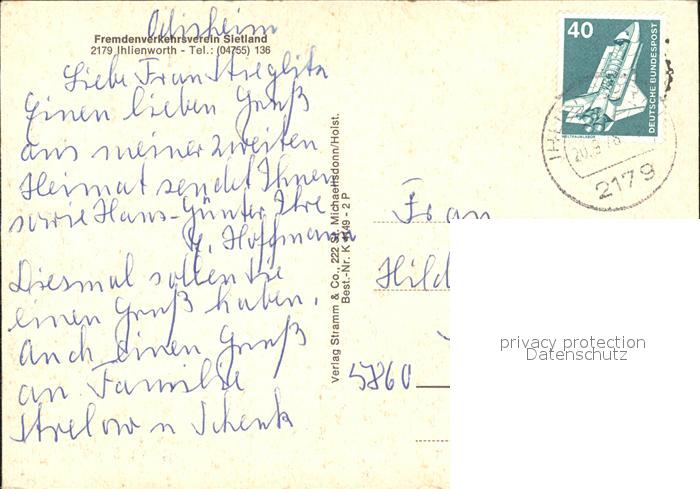 Odisheim
Fremdenverkehrsverein Sietland
2179 Ihlienworth - Tel.: (04755) 136
Liebe Frau Strieglitz
Einen lieben Gruß
aus meiner zweiten
Heimat sendet Ihnen
sowie Hans-Günter Ihre
H. Hoffmann
Diesmal sollen Sie
einen Gruß haben.
Auch einen Gruß
an Familie
Strelow u Schenk
Verlag Stramm & Co., 222 St. Michaelisdonn/Holst.
Best.-Nr. K 4149 - 2 P
40
DEUTSCHE BUNDESPOST
WELTRAUMLABOR
20.9.78
2179
Frau
Hild
5860
privacy protection
Datenschutz